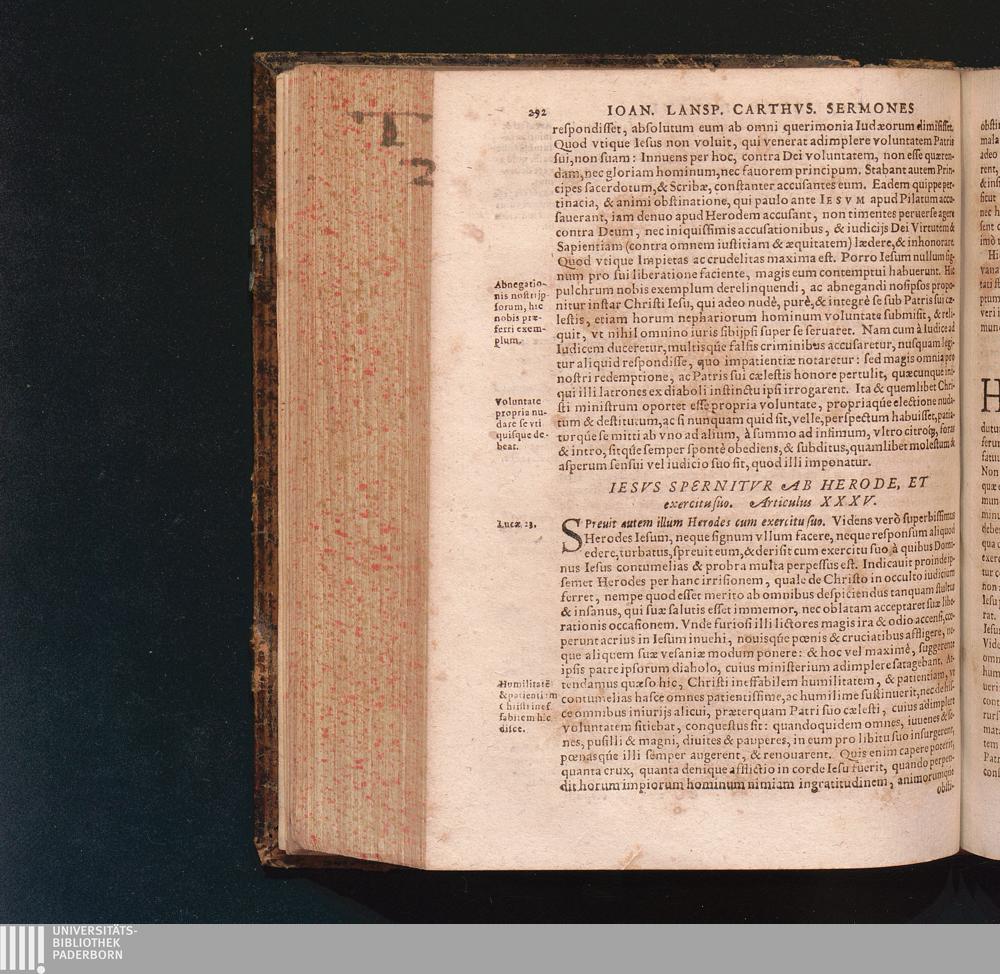 T
2
292 IOAN. LANSP. CARTHVS. SERMONES
respondisset, absolutum eum ab omni querimonia Iudæorum dimisisset.
Quod vtique Iesus non voluit, qui venerat adimplere voluntatem Patris
sui, non suam: Innuens per hoc, contra Dei voluntatem, non esse quæren-
dam, nec gloriam hominum, nec fauorem principum. Stabant autem Prin-
cipes sacerdotum, & Scribæ, constanter accusantes eum. Eadem quippe per-
tinacia, & animi obstinatione, qui paulo ante IESVM apud Pilatum accu-
sauerant, iam denuo apud Herodem accusant, non timentes peruerse agere
contra Deum, nec iniquissimis accusationibus, & iudicijs Dei Virtutem &
Sapientiam (contra omnem iustitiam & æquitatem) lædere, & inhonorare.
Quod vtique Impietas ac crudelitas maxima est. Porro Iesum nullum sig-
num pro sui liberatione faciente, magis eum contemptui habuerunt. Hic
pulchrum nobis exemplum derelinquendi, ac abnegandi nosipsos propo-
nitur instar Christi Iesu, qui adeo nudè, purè, & integrè se sub Patris sui cæ-
lestis, etiam horum nephariorum hominum voluntate submisit, & reli-
quit, vt nihil omnino iuris sibijpsi super se seruaret. Nam cum à Iudice ad
Iudicem duceretur, multisque falsis criminibus accusaretur, nusquam legi-
tur aliquid respondisse, quo impatientiæ notaretur: sed magis omnia pro
nostri redemptione, ac Patris sui cælestis honore pertulit, quæcunque ini-
qui illi latrones ex diaboli instinctu ipsi irrogarent. Ita & quemlibet Chri-
sti ministrum oportet esse propria voluntate, propriaque electione nuda-
tum & destitutum, ac si nunquam quid sit, velle, perspectum habuisset, patia-
turque se mitti ab vno ad alium, à summo ad infimum, vltro citroq;, foras
& intro, sitque semper spontè obediens, & subditus, quamlibet molestum &
asperum sensui vel iudicio suo sit, quod illi imponatur.
Abnegatio-
nis nostrijp-
sorum, hic
nobis præ-
ferti exem-
plum.
Voluntate
propria nu-
dare se vti
quisque de-
beat.
IESVS SPERNITVR AB HERODE, ET
exercitu suo. Articulus XXXV.
Lucæ 23.
SPreuit autem illum Herodes cum exercitu suo. Videns verò superbissimus
Herodes Iesum, neque signum vllum facere, neque responsum aliquod
edere, turbatus, spreuit eum, & derisit cum exercitu suo à quibus Domi-
nus Iesus contumelias & probra multa perpessus est. Indicauit proinde ip-
semet Herodes per hanc irrisionem, quale de Christo in occulto iudicium
ferret, nempe quod esset merito ab omnibus despiciendus tanquam stultus
& insanus, qui suæ salutis esset immemor, nec oblatam acceptaret suæ libe-
rationis occasionem. Vnde furiosi illi lictores magis ira & odio accensi, cœ-
perunt acrius in Iesum inuehi, nouisque pœnis & cruciatibus affligere, ne-
que aliquem suæ vesaniæ modum ponere: & hoc vel maximè, suggerente
ipsis patre ipsorum diabolo, cuius ministerium adimplere satagebant. At-
tendamus quæso hic, Christi ineffabilem humilitatem, & patientiam, vt
contumelias hasce omnes patientissime, ac humilime sustinuerit, nec de his-
ce omnibus iniurijs alicui, præterquam Patri suo cælesti, cuius adimplere
voluntatem sitiebat, conquestus sit: quandoquidem omnes, iuuenes & se-
nes, pusilli & magni, diuites & pauperes, in eum pro libitu suo insurgerent,
pœnasque illi semper augerent, & renouarent. Quis enim capere poterit,
quanta crux, quanta denique afflictio in corde Iesu fuerit, quando perpen-
dit horum impiorum hominum nimiam ingratitudinem, animorumque
obsti-
Humilitatē
& patientiam
Christi inef
fabilem hic
disce.
UNIVERSITÄTS-
BIBLIOTHEK
PADERBORN